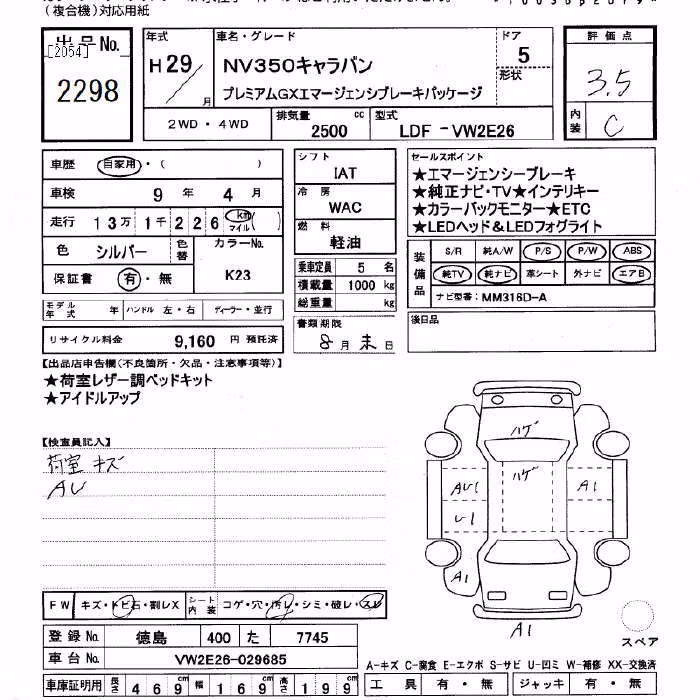 (複合機)対応用紙
出品No.
[2054]
2298
年式
H29
月
車名・グレード
NV350キャラバン
プレミアムGXエマージェンシブレーキパッケージ
ドア
5
形状
評価点
3.5
内装
C
2WD・4WD
排気量
2500
cc
型式
LDF-VW2E26
車歴
自家用・( )
車検
9 年 4 月
走行
13万1千226 km マイル( )
色
シルバー
色替
カラーNo.
K23
保証書
有・無
モデル年式
年
ハンドル 左・右
ディーラー・並行
リサイクル料金
9,160 円 預託済
シフト
IAT
冷房
WAC
燃料
軽油
乗車定員 5 名
積載量 1000 kg
総重量 kg
書類期限
8月末日
セールスポイント
★エマージェンシーブレーキ
★純正ナビ・TV★インテリキー
★カラーバックモニター★ETC
★LEDヘッド&LEDフォグライト
装備品
S/R 純A/W P/S P/W ABS
純TV 純ナビ 革シート 外ナビ エアB
ナビ型番: MM316D-A
後日品
【出品店申告欄(不良箇所・欠品・注意事項等)】
★荷室レザー調ベッドキット
★アイドルアップ
【検査員記入】
荷室 キズ
AU
ハゲ
ハゲ
AU1
A1
U1
A1
A1
スペア
FW
キズ・トビ石・割レX
シート内装
コゲ・穴・汚レ・シミ・破レ・スレ
登録No.
徳島 400 た 7745
車台No.
VW2E26-029685
車庫証明用
長さ 469cm 幅 169cm 高さ 199cm
A-キズ C-腐食 E-エクボ S-サビ U-凹ミ W-補修 XX-交換済
工具 有・無
ジャッキ 有・無